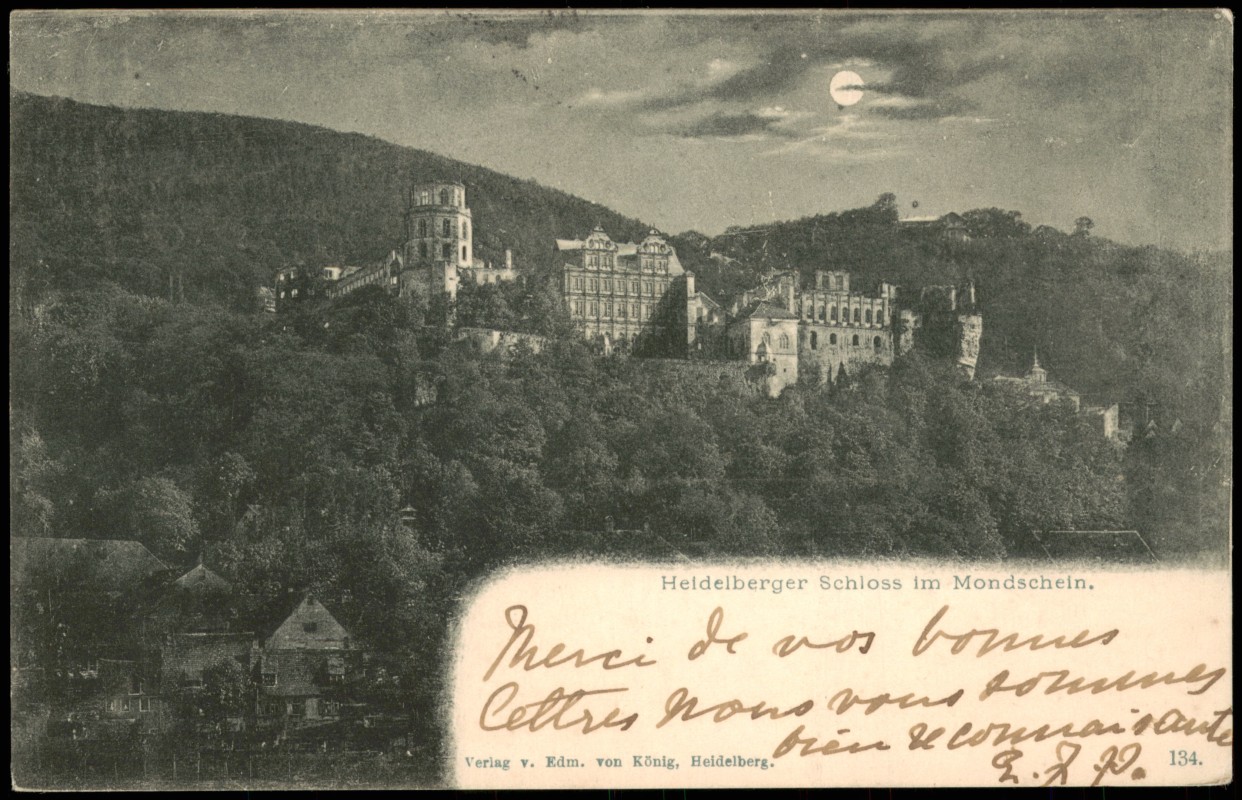 Heidelberger Schloss im Mondschein.
Merci de vos bonnes
Lettres nous vous sommes
bien reconnaissante
Verlag v. Edm. von König, Heidelberg.
134.